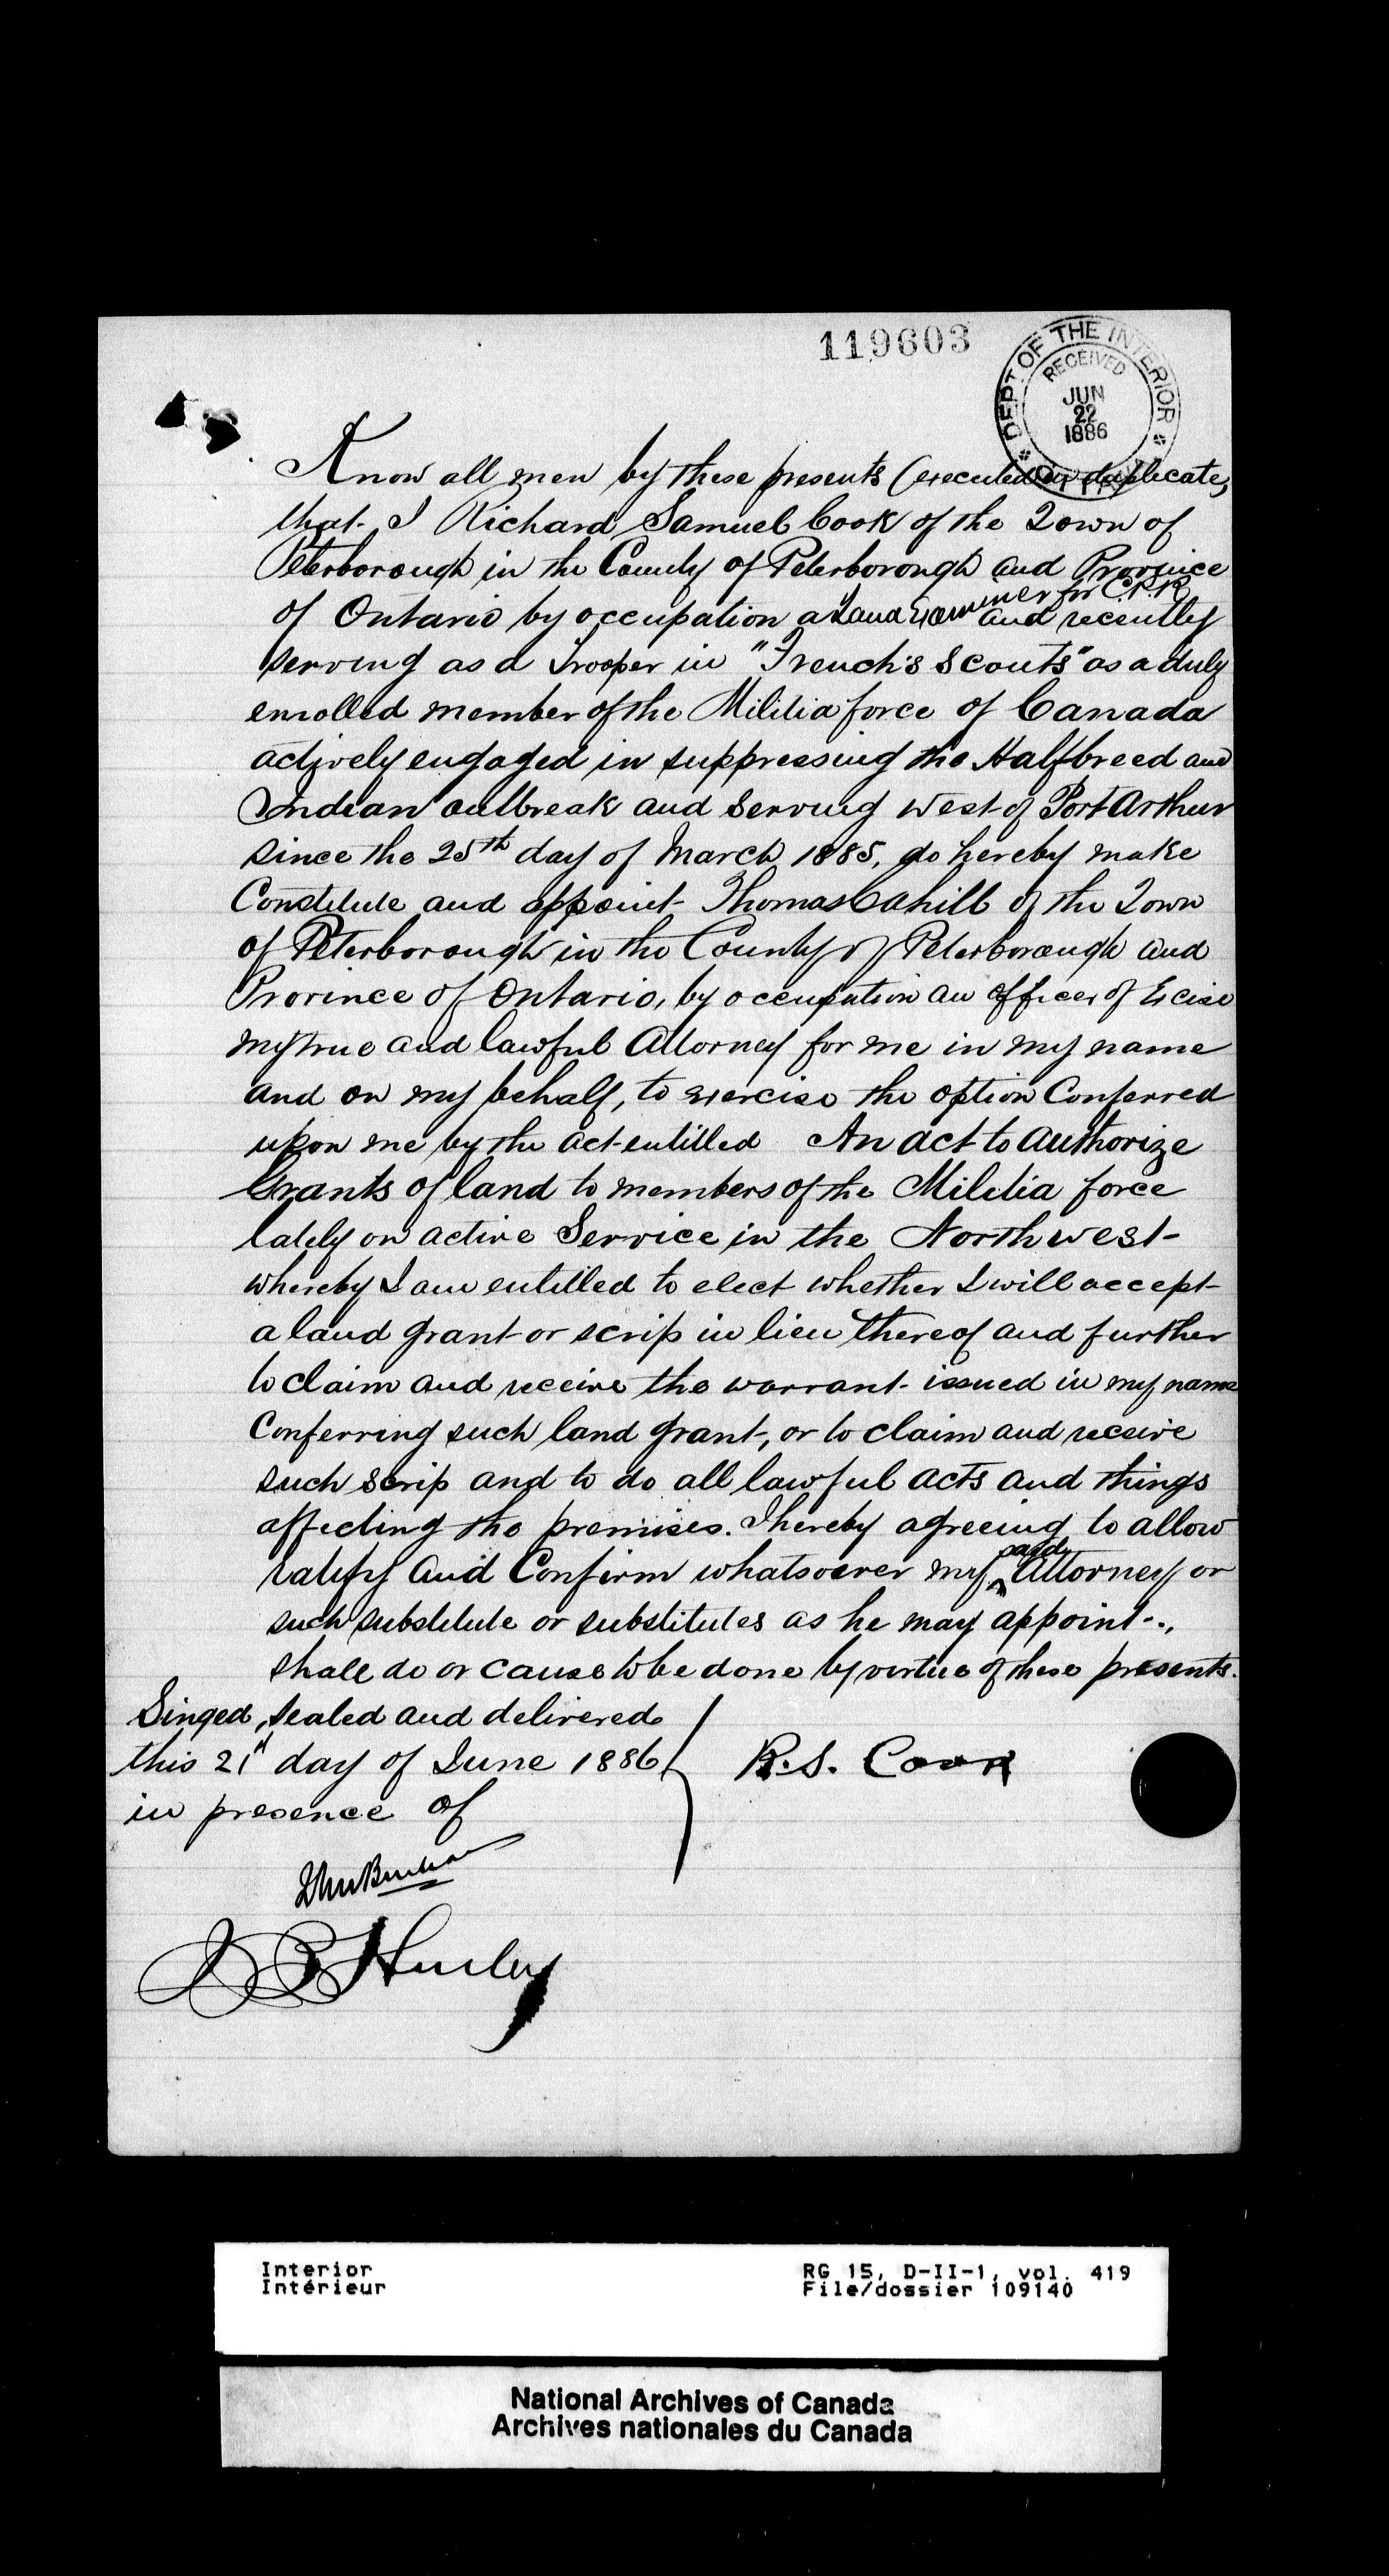 119603
DEPT OF THE INTERIOR
RECEIVED
JUN
22
1886
Know all men by these presents (executed in duplicate,
that I Richard Samuel Cook of the Town of
Peterborough in the County of Peterborough and Province
of Ontario by occupation a Land Examiner for C.P.R. and recently
serving as a Trooper in "French's Scouts" as a duly
enrolled member of the Militia force of Canada
actively engaged in suppressing the Halfbreed and
Indian outbreak and serving west of Port Arthur
since the 25th day of March 1885, do hereby make
Constitute and appoint Thomas Cahill of the Town
of Peterborough in the County of Peterborough and
Province of Ontario, by occupation an officer of Excise
my true and lawful Attorney for me in my name
and on my behalf, to exercise the option Conferred
upon me by the act entitled An act to authorize
Grants of land to members of the Militia force
lately on active Service in the Northwest
whereby I am entitled to elect whether I will accept
a land grant or scrip in lieu thereof and further
to claim and receive the warrant issued in my name
Conferring such land grant, or to claim and receive
such scrip and to do all lawful acts and things
affecting the premises. I hereby agreeing to allow
ratify and Confirm whatsoever my said Attorney or
such substitute or substitutes as he may appoint.,
shall do or cause to be done by virtue of these presents.
Singed, sealed and delivered
this 21st day of June 1886
in presence of
R.S. Cook
Hurley
Interior
Intérieur
RG 15, D-II-1, vol. 419
File/dossier 109140
National Archives of Canada
Archives nationales du Canada